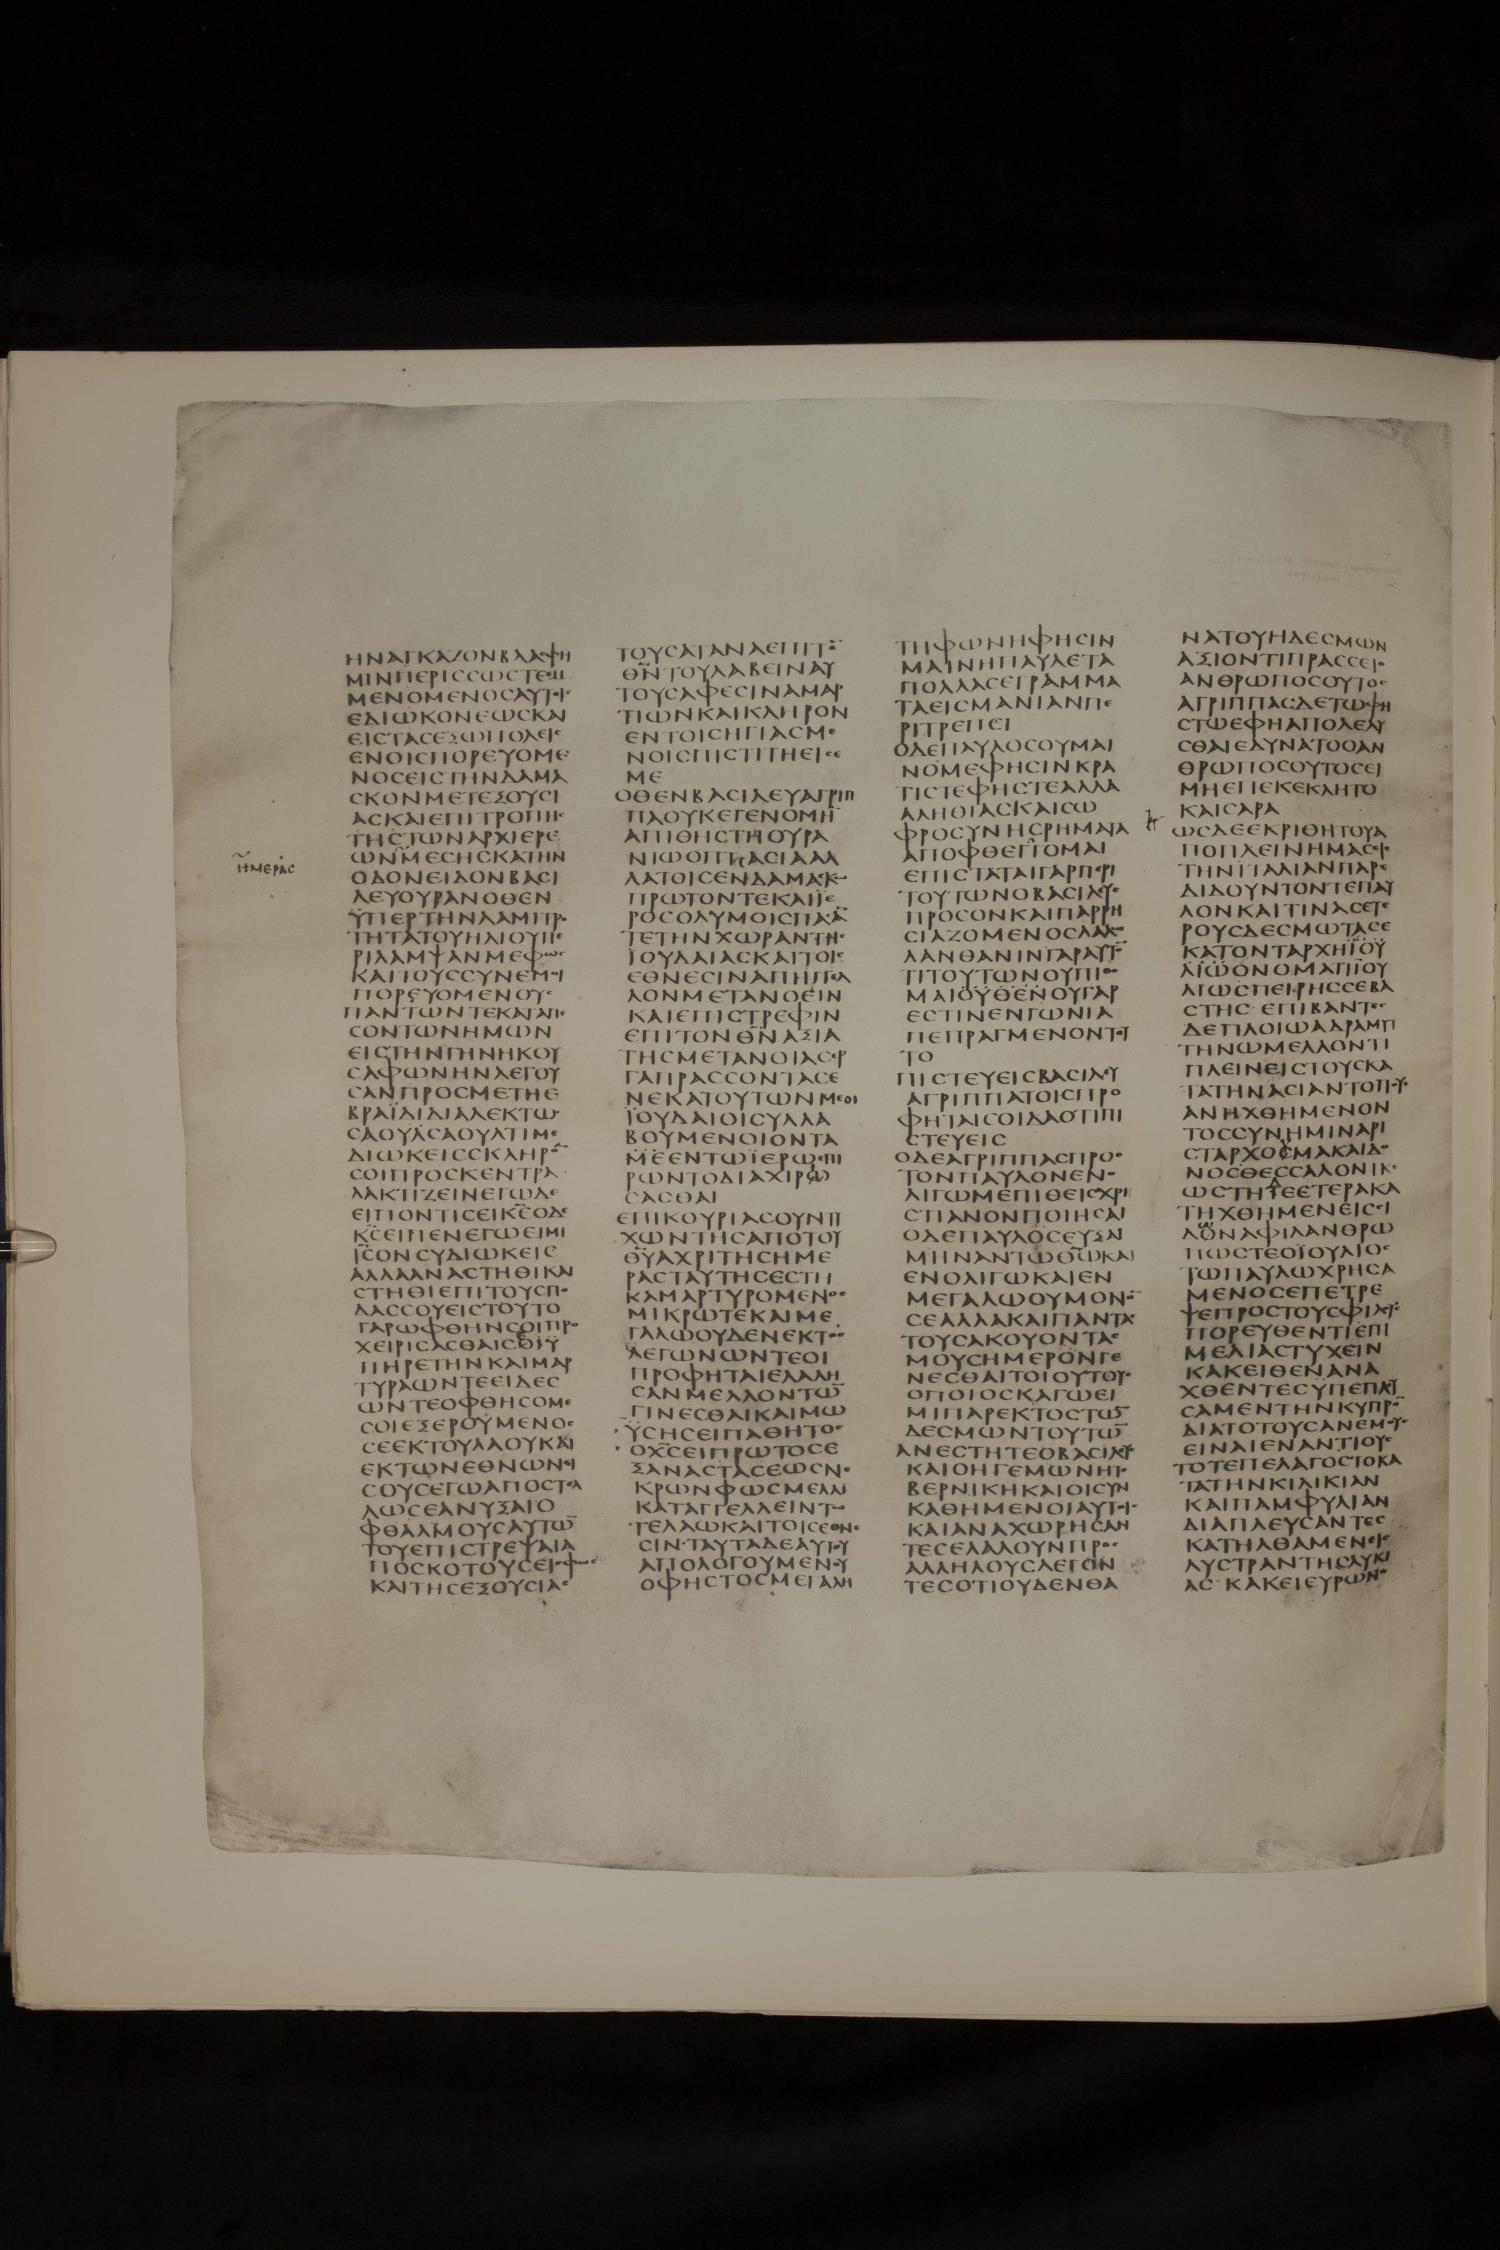 ΗΝΑΓΚΑΖΟΝΒΛΑϹΦΗ
ΜΙΝΠΕΡΙϹϹΩϹΤΕΕΜ
ΜΕΝΟΜΕΝΟϹΑΥΤΟΙϹ
ΕΔΙΩΚΟΝΕΩϹΚΑΙ
ΕΙϹΤΑϹΕΞΩΠΟΛΕΙϹ
ΕΝΟΙϹΠΟΡΕΥΟΜΕ
ΝΟϹΕΙϹΤΗΝΔΑΜΑ
ϹΚΟΝΜΕΤΕΞΟΥϹΙ
ΑϹΚΑΙΕΠΙΤΡΟΠΗϹ
ΤΗϹΤΩΝΑΡΧΙΕΡΕ
ΩΝΜΕϹΗϹΚΑΤΗΝ
ἡμεραϲ
ΟΔΟΝΕΙΔΟΝΒΑϹΙ
ΛΕΥΟΥΡΑΝΟΘΕΝ
ΫΠΕΡΤΗΝΛΑΜΠΡΟ
ΤΗΤΑΤΟΥΗΛΙΟΥΠΕ
ΡΙΛΑΜΨΑΝΜΕΦΩϹ
ΚΑΙΤΟΥϹϹΥΝΕΜΟΙ
ΠΟΡΕΥΟΜΕΝΟΥϹ
ΠΑΝΤΩΝΤΕΚΑΤΑΠΕ
ϹΟΝΤΩΝΗΜΩΝ
ΕΙϹΤΗΝΓΗΝΗΚΟΥ
ϹΑΦΩΝΗΝΛΕΓΟΥ
ϹΑΝΠΡΟϹΜΕΤΗΕ
ΒΡΑΪΔΙΔΙΑΛΕΚΤΩ
ϹΑΟΥΛϹΑΟΥΛΤΙΜΕ
ΔΙΩΚΕΙϹϹΚΛΗΡΟ̅
ϹΟΙΠΡΟϹΚΕΝΤΡΑ
ΛΑΚΤΙΖΕΙΝΕΓΩΔΕ
ΕΙΠΟΝΤΙϹΕΙΚ̅Ε̅ΟΔΕ
Κ̅Ϲ̅ΕΙΠΕΝΕΓΩΕΙΜΙ
Ι̅Ϲ̅ΟΝϹΥΔΙΩΚΕΙϹ
ΑΛΛΑΑΝΑϹΤΗΘΙΚΑΙ
ϹΤΗΘΙΕΠΙΤΟΥϹΠΟ
ΔΑϹϹΟΥΕΙϹΤΟΥΤΟ
ΓΑΡΩΦΘΗΝϹΟΙΠΡΟ
ΧΕΙΡΙϹΑϹΘΑΙϹΕΫ
ΠΗΡΕΤΗΝΚΑΙΜΑΡ
ΤΥΡΑΩΝΤΕΕΙΔΕϹ
ΩΝΤΕΟΦΘΗϹΟΜΕ
ϹΟΙΕΞΕΡΟΥΜΕΝΟϹ
ϹΕΕΚΤΟΥΛΑΟΥΚΑΙ
ΕΚΤΩΝΕΘΝΩΝΟΙ
ϹΟΥϹΕΓΩΑΠΟϹΤΕΛ
ΛΩϹΕΑΝΥΞΑΙΟ
ΦΘΑΛΜΟΥϹΑΥΤΩ̅
ΤΟΥΕΠΙϹΤΡΕΨΑΙΑ
ΠΟϹΚΟΤΟΥϹΕΙϹΦΩϹ
ΚΑΙΤΗϹΕΞΟΥϹΙΑϹ
ΤΟΥϹΑΤΑΝΑΕΠΙΤΟ̅
Θ̅Ν̅ΤΟΥΛΑΒΕΙΝΑΥ
ΤΟΥϹΑΦΕϹΙΝΑΜΑΡ
ΤΙΩΝΚΑΙΚΛΗΡΟΝ
ΕΝΤΟΙϹΗΓΙΑϹΜΕ
ΝΟΙϹΠΙϹΤΙΤΗΕΙϹΕ
ΜΕ
ΟΘΕΝΒΑϹΙΛΕΥΑΓΡΙΠ
ΠΑΟΥΚΕΓΕΝΟΜΗ̅
ΑΠΙΘΗϹΤΗΟΥΡΑ
ΝΙΩΟΠΤΑϹΙΑΑΛ
ΛΑΤΟΙϹΕΝΔΑΜΑϹΚΩ
ΠΡΩΤΟΝΤΕΚΑΙΪΕ
ΡΟϹΟΛΥΜΟΙϹΠΑϹΑ̅
ΤΕΤΗΝΧΩΡΑΝΤΗϹ
ΪΟΥΔΑΙΑϹΚΑΙΤΟΙϹ
ΕΘΝΕϹΙΝΑΠΗΓΓΕΛ
ΛΟΝΜΕΤΑΝΟΕΙΝ
ΚΑΙΕΠΙϹΤΡΕΦΙΝ
ΕΠΙΤΟΝΘ̅Ν̅ΑΞΙΑ
ΤΗϹΜΕΤΑΝΟΙΑϹΕΡ
ΓΑΠΡΑϹϹΟΝΤΑϹΕ
ΝΕΚΑΤΟΥΤΩΝΜΕΟΙ
ΪΟΥΔΑΙΟΙϹΥΛΛΑ
ΒΟΥΜΕΝΟΙΟΝΤΑ
ΜΕΕΝΤΩΪΕΡΩΕΠΙ
ΡΩΝΤΟΔΙΑΧΙΡΙ
ϹΑϹΘΑΙ
ΕΠΙΚΟΥΡΙΑϹΟΥΝΤΥ
ΧΩΝΤΗϹΑΠΟΤΟΥ
Θ̅Υ̅ΑΧΡΙΤΗϹΗΜΕ
ΡΑϹΤΑΥΤΗϹΕϹΤΗ
ΚΑΜΑΡΤΥΡΟΜΕΝΟϹ
ΜΙΚΡΩΤΕΚΑΙΜΕ
ΓΑΛΩΟΥΔΕΝΕΚΤΟϹ
ΛΕΓΩΝΩΝΤΕΟΙ
ΠΡΟΦΗΤΑΙΕΛΑΛΗ
ϹΑΝΜΕΛΛΟΝΤΩ̅
ΓΙΝΕϹΘΑΙΚΑΙΜΩ
ΫϹΗϹΕΙΠΑΘΗΤΟϹ
ΟΧ̅Ϲ̅ΕΙΠΡΩΤΟϹΕ
ΞΑΝΑϹΤΑϹΕΩϹΝΕ
ΚΡΩΝΦΩϹΜΕΛΛΙ
ΚΑΤΑΓΓΕΛΛΕΙΝΤΩ
ΤΕΛΑΩΚΑΙΤΟΙϹΕΘΝΕ
ϹΙΝ·ΤΑΥΤΑΔΕΑΥΤΟΥ
ΑΠΟΛΟΓΟΥΜΕΝΟΥ
ΟΦΗϹΤΟϹΜΕΓΑΛΗ
ΤΗΦΩΝΗΦΗϹΙΝ
ΜΑΙΝΗΠΑΥΛΕΤΑ
ΠΟΛΛΑϹΕΓΡΑΜΜΑ
ΤΑΕΙϹΜΑΝΙΑΝΠΕ
ΡΙΤΡΕΠΕΙ
ΟΔΕΠΑΥΛΟϹΟΥΜΑΙ
ΝΟΜΕΦΗϹΙΝΚΡΑ
ΤΙϹΤΕΦΗϹΤΕΑΛΛΑ
ΑΛΗΘΙΑϹΚΑΙϹΩ
ΦΡΟϹΥΝΗϹΡΗΜΑΤΑ
ΑΠΟΦΘΕΓΓΟΜΑΙ
ΕΠΙϹΤΑΤΑΙΓΑΡΠΕΡΙ
ΤΟΥΤΩΝΟΒΑϹΙΛΕΥϹ
ΠΡΟϹΟΝΚΑΙΠΑΡΡΗ
ϹΙΑΖΟΜΕΝΟϹΛΑΛΩ
ΛΑΝΘΑΝΙΝΓΑΡΑΥΤΟ̅
ΤΙΤΟΥΤΩΝΟΥΠΙΘΟ
ΜΑΙΟΥΘΕΝΟΥΓΑΡ
ΕϹΤΙΝΕΝΓΩΝΙΑ
ΠΕΠΡΑΓΜΕΝΟΝΤΟΥ
ΤΟ
ΠΙϹΤΕΥΕΙϹΒΑϹΙΛΕΥ
ΑΓΡΙΠΠΑΤΟΙϹΠΡΟ
ΦΗΤΑΙϹΟΙΔΑΟΤΙΠΙ
ϹΤΕΥΕΙϹ
ΟΔΕΑΓΡΙΠΠΑϹΠΡΟϹ
ΤΟΝΠΑΥΛΟΝΕΝΟ
ΛΙΓΩΜΕΠΙΘΕΙϹΧΡΗ
ϹΤΙΑΝΟΝΠΟΙΗϹΑΙ
ΟΔΕΠΑΥΛΟϹΕΥΞΑΙ
ΜΗΝΑΝΤΩΘ̅Ω̅ΚΑΙ
ΕΝΟΛΙΓΩΚΑΙΕΝ
ΜΕΓΑΛΩΟΥΜΟΝΟ̅
ϹΕΑΛΛΑΚΑΙΠΑΝΤΑϹ
ΤΟΥϹΑΚΟΥΟΝΤΑϹ
ΜΟΥϹΗΜΕΡΟΝΓΕ
ΝΕϹΘΑΙΤΟΙΟΥΤΟΥϹ
ΟΠΟΙΟϹΚΑΓΩΕΙ
ΜΙΠΑΡΕΚΤΟϹΤΩ̅
ΔΕϹΜΩΝΤΟΥΤΩ̅
ΑΝΕϹΤΗΤΕΟΒΑϹΙΛΕΥϹ
ΚΑΙΟΗΓΕΜΩΝΗΤΕ
ΒΕΡΝΙΚΗΚΑΙΟΙϹΥΝ
ΚΑΘΗΜΕΝΟΙΑΥΤΟΙϹ
ΚΑΙΑΝΑΧΩΡΗϹΑΝ
ΤΕϹΕΛΑΛΟΥΝΠΡΟϹ
ΑΛΛΗΛΟΥϹΛΕΓΟΝ
ΤΕϹΟΤΙΟΥΔΕΝΘΑ
ΝΑΤΟΥΗΔΕϹΜΩΝ
ΑΞΙΟΝΤΙΠΡΑϹϹΕΙΟ
ΑΝΘΡΩΠΟϹΟΥΤΟϹ
ΑΓΡΙΠΠΑϹΔΕΤΩΦΗ
ϹΤΩΕΦΗΑΠΟΛΕΛΥ
ϹΘΑΙΕΔΥΝΑΤΟΟΑΝ
ΘΡΩΠΟϹΟΥΤΟϹΕΙ
ΜΗΕΠΕΚΕΚΛΗΤΟ
ΚΑΙϹΑΡΑ
ΩϹΔΕΕΚΡΙΘΗΤΟΥΑ
ΠΟΠΛΕΙΝΗΜΑϹΕΙϹ
ΤΗΝΪΤΑΛΙΑΝΠΑΡΕ
ΔΙΔΟΥΝΤΟΝΤΕΠΑΥ
ΛΟΝΚΑΙΤΙΝΑϹΕΤΕ
ΡΟΥϹΔΕϹΜΩΤΑϹΕ
ΚΑΤΟΝΤΑΡΧΗΪΟΥ
ΛΙΩΟΝΟΜΑΤΙΪΟΥ
ΛΙΩϹΠΕΙΡΗϹϹΕΒΑ
ϹΤΗϹ ΕΠΙΒΑΝΤΕϹ
ΔΕΠΛΟΙΩΑΔΡΑΜΥ
ΤΗΝΩΜΕΛΛΟΝΤΙ
ΠΛΕΙΝΕΙϹΤΟΥϹΚΑ
ΤΑΤΗΝΑϹΙΑΝΤΟΠΟΥϹ
ΑΝΗΧΘΗΜΕΝΟΝ
ΤΟϹϹΥΝΗΜΙΝΑΡΙ
ϹΤΑΡΧΟΥΜΑΚΑΙΔΟ
ΝΟϹΘΕϹϹΑΛΟΝΙΚΕ
ΩϹΤΗΤΕΕΤΕΡΑΚΑ
ΤΗΧΘΗΜΕΝΕΙϹϹΙ
ΔΩΝΑΦΙΛΑΝΘΡΩ
ΠΩϹΤΕΟΪΟΥΛΙΟϹ
ΤΩΠΑΥΛΩΧΡΗϹΑ
ΜΕΝΟϹΕΠΕΤΡΕ
ΨΕΠΡΟϹΤΟΥϹΦΙΛΟΥϹ
ΠΟΡΕΥΘΕΝΤΙΕΠΙ
ΜΕΛΙΑϹΤΥΧΕΙΝ
ΚΑΚΕΙΘΕΝΑΝΑ
ΧΘΕΝΤΕϹΫΠΕΠΛΕΥ
ϹΑΜΕΝΤΗΝΚΥΠΡΟ̅
ΔΙΑΤΟΤΟΥϹΑΝΕΜΟΥϹ
ΕΙΝΑΙΕΝΑΝΤΙΟΥϹ
ΤΟΤΕΠΕΛΑΓΟϹΤΟΚΑ
ΤΑΤΗΝΚΙΛΙΚΙΑΝ
ΚΑΙΠΑΜΦΥΛΙΑΝ
ΔΙΑΠΛΕΥϹΑΝΤΕϹ
ΚΑΤΗΛΘΑΜΕΝΕΙϹ
ΛΥϹΤΡΑΝΤΗϹΛΥΚΙ
ΑϹ·ΚΑΚΕΙΕΥΡΩΝΟ